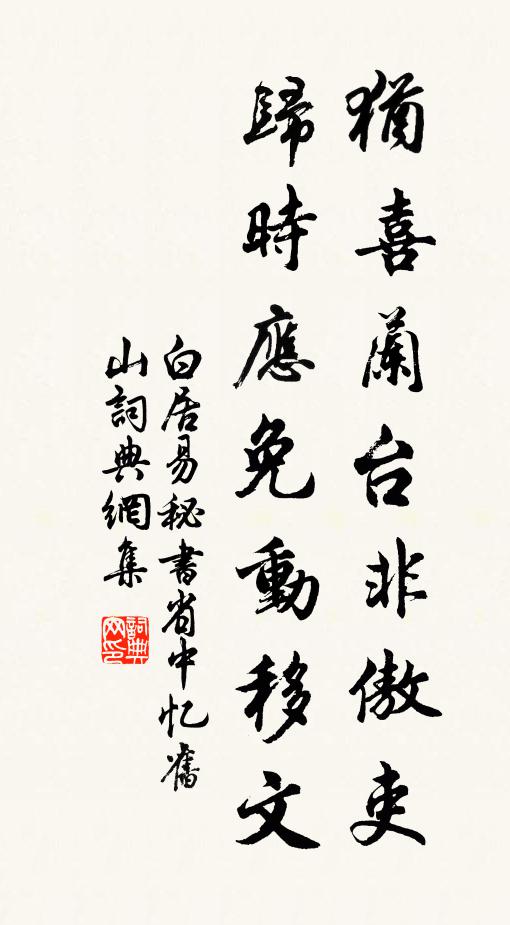 猶喜蘭台非傲吏
歸時應免動移文
白居易秘書省中忆舊
山詞典網集
詞典网印